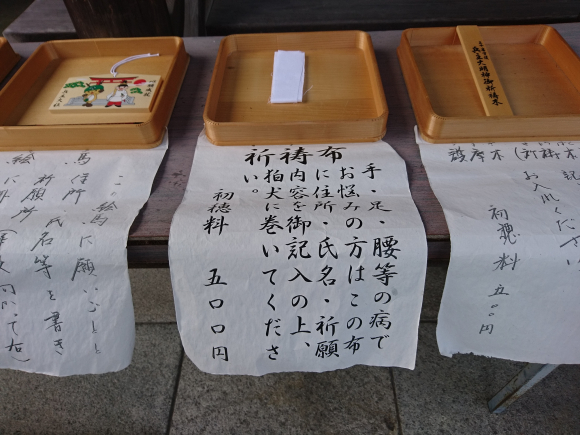 絵馬
この絵馬に願いごとと
住所 氏名等を書き
祈願所
祈祷布
手・足・腰等の病で
お悩みの方はこの布
に住所・氏名・祈願
内容を御記入の上、
狛犬に巻いてくださ
い。
初穂料 五〇〇円
大明神御祈祷木
護摩木(祈祷木
お入れください
初穂料 五〇〇円